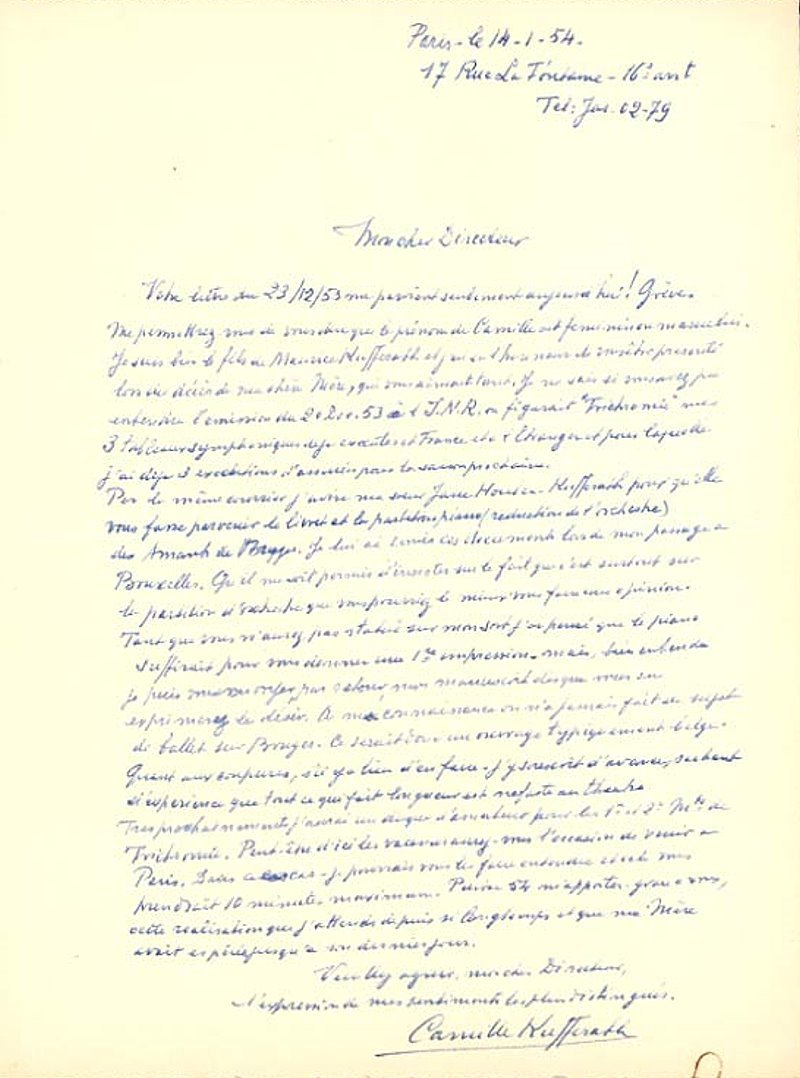 Paris - le 14-1-54.
17 Rue La Fontaine - 16e arrt
Tel: Jas. 02-79
Mon cher Directeur
Votre lettre du 23/12/53 me parvient seulement aujourd'hui! Grève.
Me permettrez-vous de vous dire que le prénom de Camille est feminin ou masculin.
Je suis bien le fils de Maurice Kufferath et j'ai eu l'honneur de vous être presenté
lors du décès de ma chère Mère, qui vous aimait tant. Je ne sais si vous avez pu
entendre l'emission du 20 53 à l'I.N.R. ou figurait "Trichromie" mes
3 tableaux symphoniques deja executés en France et à l'Etranger et pour lesquels
j'ai deja 3 executions d'assurées pour la saison prochaine.
Par le même courrier j'avise ma sœur Kufferath pour qu'elle
vous fasse parvenir le livret et la partition piano (reduction de l'orchestre)
des Amants de Bruges. Je lui ai ces documents lors de mon passage a
Bruxelles. Qu'il me soit permis d'insister sur le fait que c'est surtout sur
la partition d'orchestre que vous pourriez le mieux vous faire une opinion.
Tant que vous n'aurez pas statué sur mon sort j'ai pensé que le piano
suffirait pour vous donner une 1re impression - mais, bien entendu
je puis vous envoyer par retour mon manuscrit des que vous en
exprimerez le désir. A ma connaissance on n'a jamais fait un sujet
de ballet sur Bruges. Ce serait donc un ouvrage typiquement belge.
Quant aux coupures, s'il y a lieu d'en faire - j'y souscrit d'avance, sachant
d'experience que tout ce qui fait longueur est nefaste au theatre
Tres prochainement j'aurai un disque d'amateur pour les 1r et 2e Mts de
Trichromie. Peut-être d'ici les vacances aurez-vous l'occasion de venir a
Paris. Dans ce cas - je pourrais vous le faire entendre et cela vous
prendrait 10 minutes maximum. Puisse 54 m'apporter grace a vous,
cette realisation que j'attends depuis si longtemps et que ma Mère
avait espérée jusqu'a son dernier jour.
Veuillez agreer, mon cher Directeur,
l'expression de mes sentiments les plus distingués.
Camille Kufferath